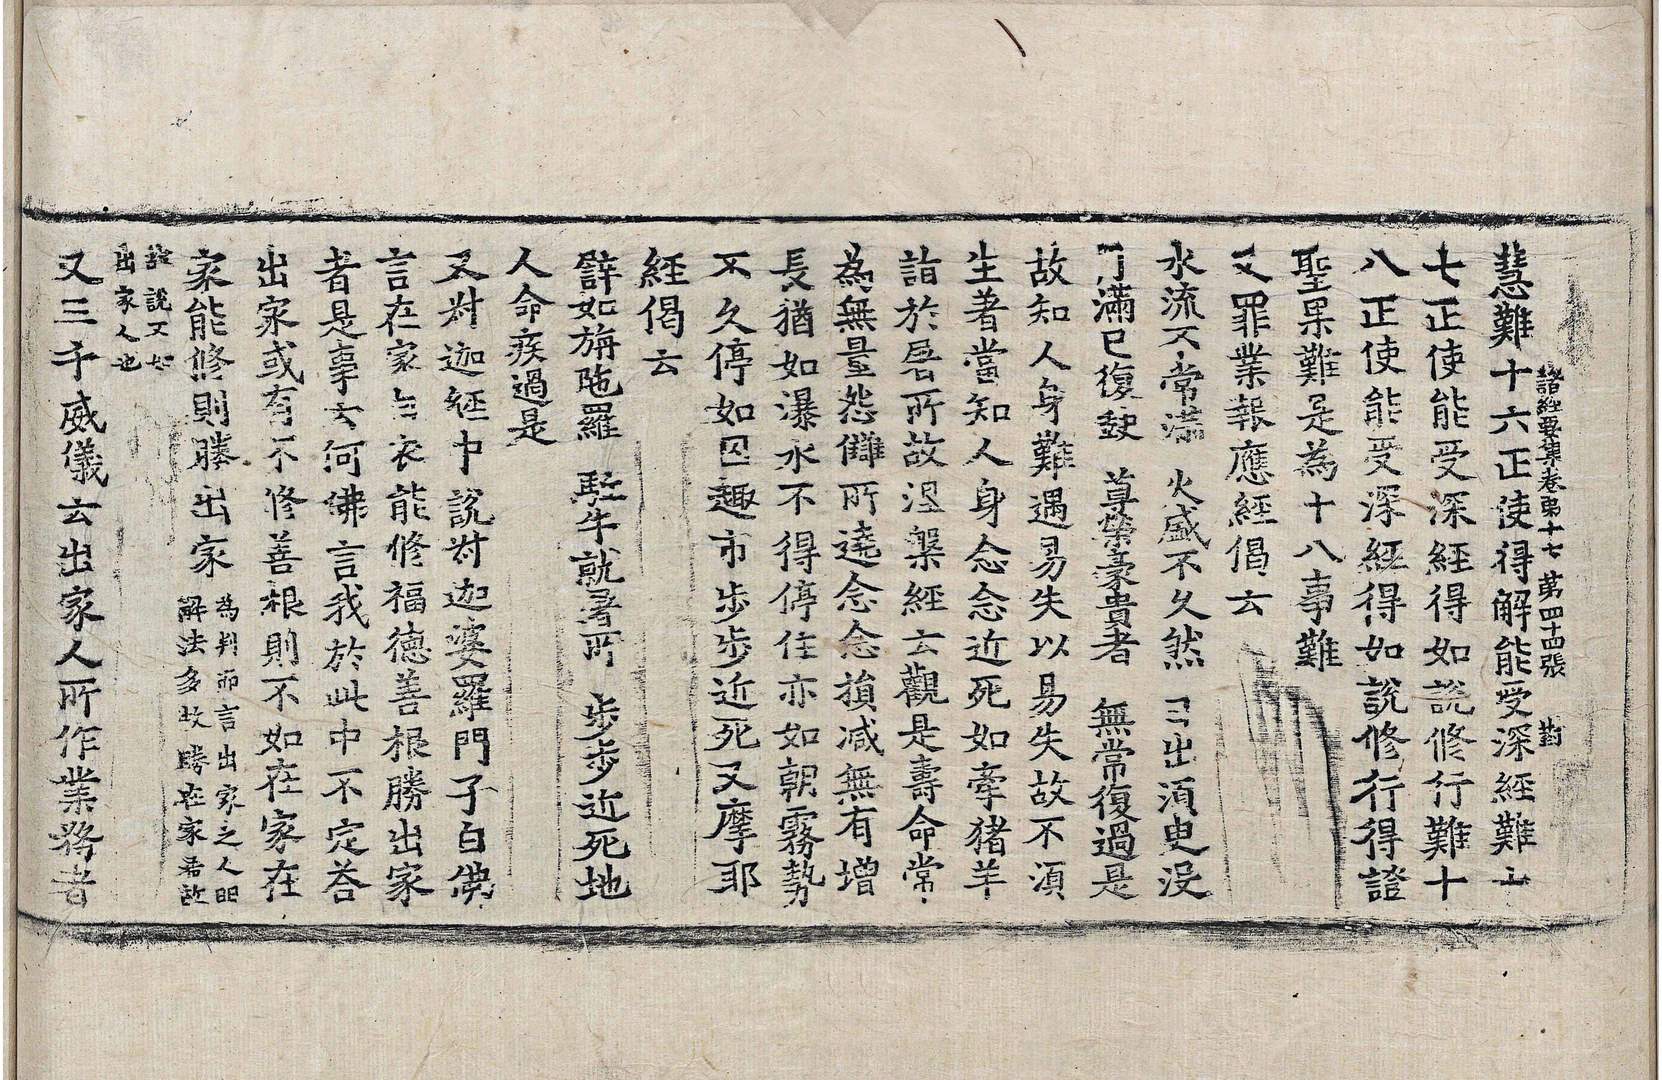 慧難十六正使得解能受深經難十
諸經要集卷第十七 第四十四張 對
七正使能受深經得如說修行難十
八正使能受深經得如說修行得證
聖果難是為十八事難
又罪業報應經偈云
水流不常滿 火盛不久然 日出須臾没
月滿已復缺 尊榮豪貴者 無常復過是
故知人身難遇易失以易失故不須
生著當知人身念念近死如牽猪羊
詣於屠所故涅槃經云觀是壽命常
為無量怨讎所遶念念損減無有增
長猶如瀑水不得停住亦如朝露勢
不久停如囚趣市步步近死又摩耶
經偈云
譬如旃陁羅 駈牛就屠所 步步近死地
人命疾過是
又對迦經中說對迦婆羅門子白佛
言在家白衣能修福德善根勝出家
者是事云何佛言我於此中不定荅
出家或有不修善根則不如在家在
家能修則勝出家
為判而言出家之人明
解法多故勝在家若故
說又如
出家人也
又三千威儀云出家人所作業務者